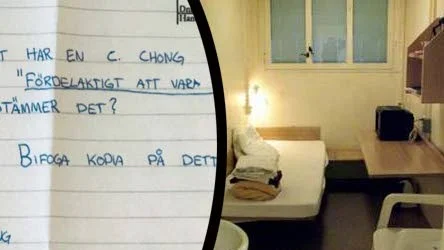 HAR EN C. CHONG
"FÖRDELAKTIGT ATT VARA
STÄMMER DET?
BIFOGA KOPIA PÅ DETT